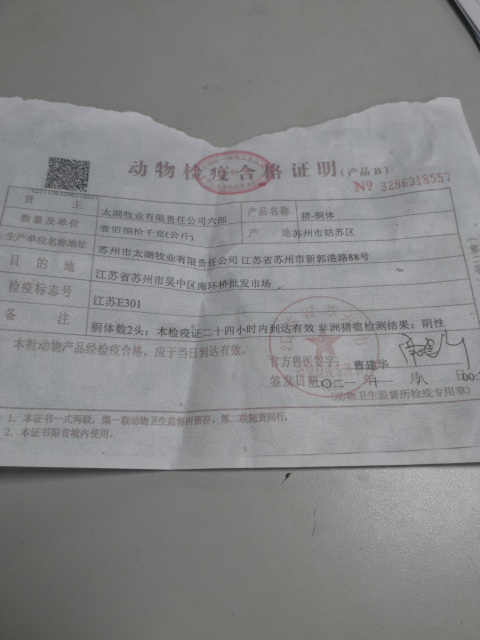 动物检疫合格证明(产品B)
№ 3286318557
货 主 太湖牧业有限责任公司六部 产品名称 猪-胴体
数量及单位 壹佰捌拾千克(公斤) 产 地 苏州市姑苏区
生产单位名称地址 苏州市太湖牧业有限责任公司 江苏省苏州市新郭港路88号
目 的 地 江苏省苏州市吴中区南环桥批发市场
检疫标志号 江苏E301
备 注 胴体数2头; 本检疫证二十四小时内到达有效 非洲猪瘟检测结果: 阴性
本批动物产品经检疫合格, 应于当日到达有效。
官方兽医签字: 曹建华
签发日期
(动物卫生监督所检疫专用章)
1. 本证书一式两联, 第一联动物卫生监督所留存, 第二联随货同行。
2. 本证书限省境内使用。